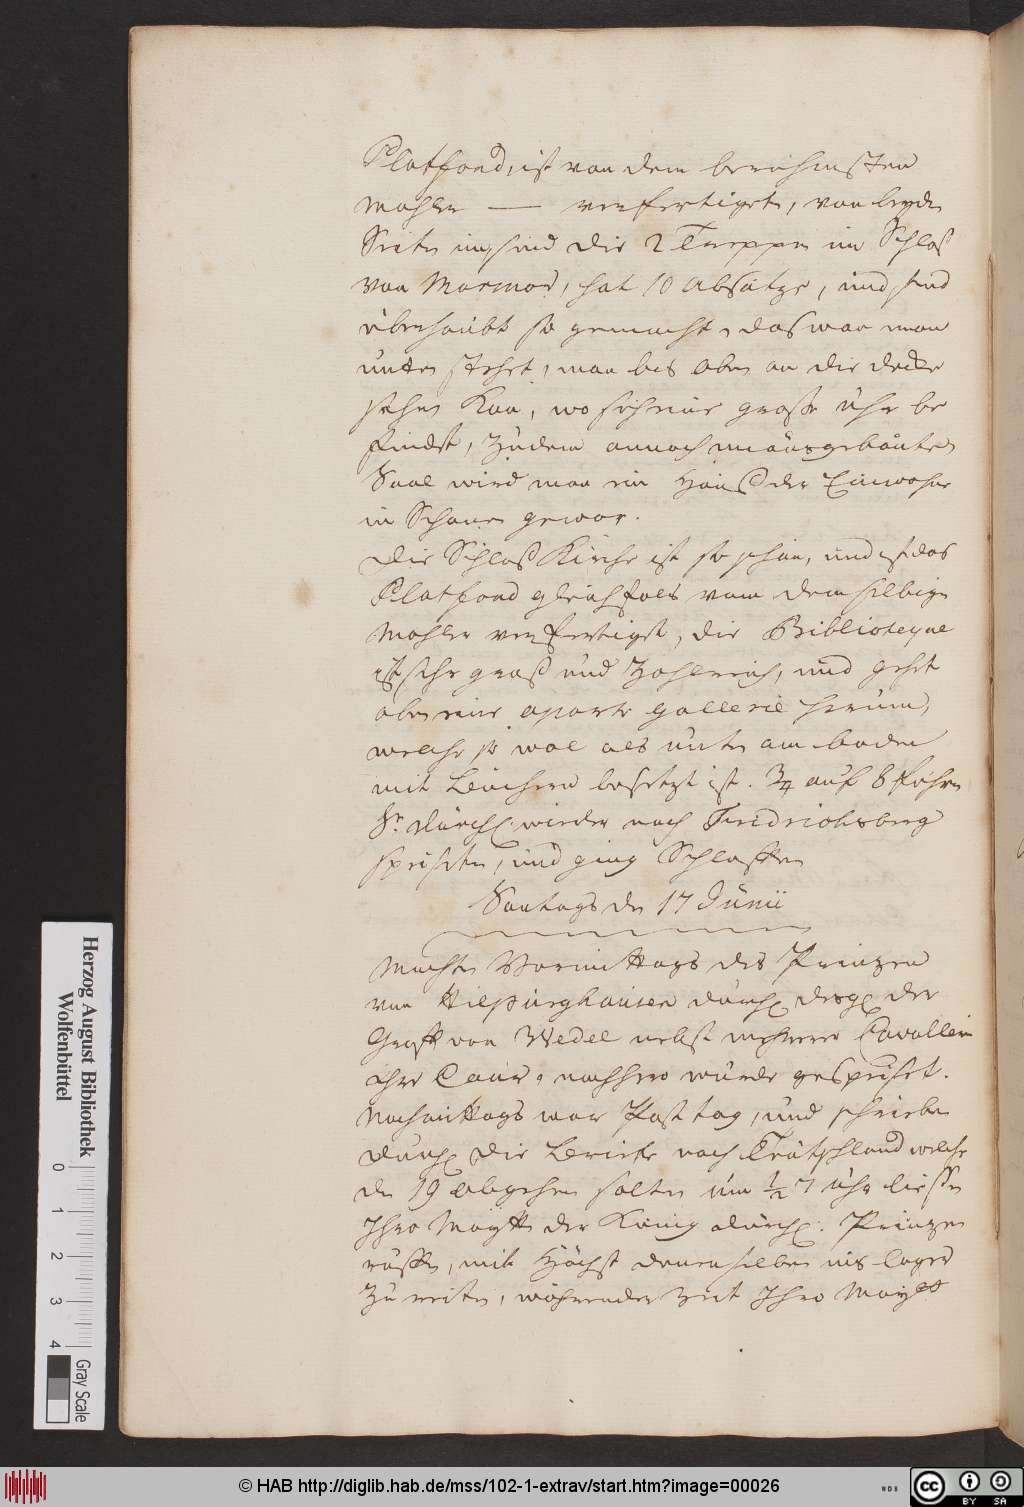 Platfond, ist von dem berühmsten
Mahler — verfertiget, von beyden
Seiten sind die 2 Treppen im Schloß
von Marmor, hat 10 Absätze, und sind
überhaubt so gemacht, das wan man
unten stehet, man bis oben an die decke
sehen Kan, wo sich eine große Uhr be
findet, Zudem annoch unausgebauten
Saal wird man ein Hauß der Einwohner
in Schonen gewar.
Die Schloß Kirche ist so schön, und ist das
Platfond gleichfals vom dem selbigen
Mahler verfertiget, die Biblioteque
ist sehr groß und Zahlreich, und gehet
oben eine aparte gallerie herum,
welche so wol als unten am boden
mit Büchern besetzt ist. 3/4 auf 8 fuhren
Sr. Durchl. wieder nach Friedrichsberg
speiseten, und ging Schlaffen
Sontags den 17 Junii
Machten Vormittags des Prinzen
von Hilpurghausen Durchl. desgl. der
Graff von Wedel nebst mehrere Cavalliers
ihre Cour, nachhero wurde gespeiset.
Nachmittags war Posttag, und schrieben
Durchl. die Briefe nach Teutschland welche
den 19 abgehen solten um 1/2 7 Uhr liessen
Ihro Maytt. der König Durchl. Prinzen
ruffen, mit Höchst denenselben ins lager
Zu reiten, währender Zeit Ihro Maytt.
Herzog August Bibliothek
Wolfenbüttel
0 1 2 3 4
Gray Scale
© HAB http://diglib.hab.de/mss/102-1-extrav/start.htm?image=00026
WDB
CC BY SA